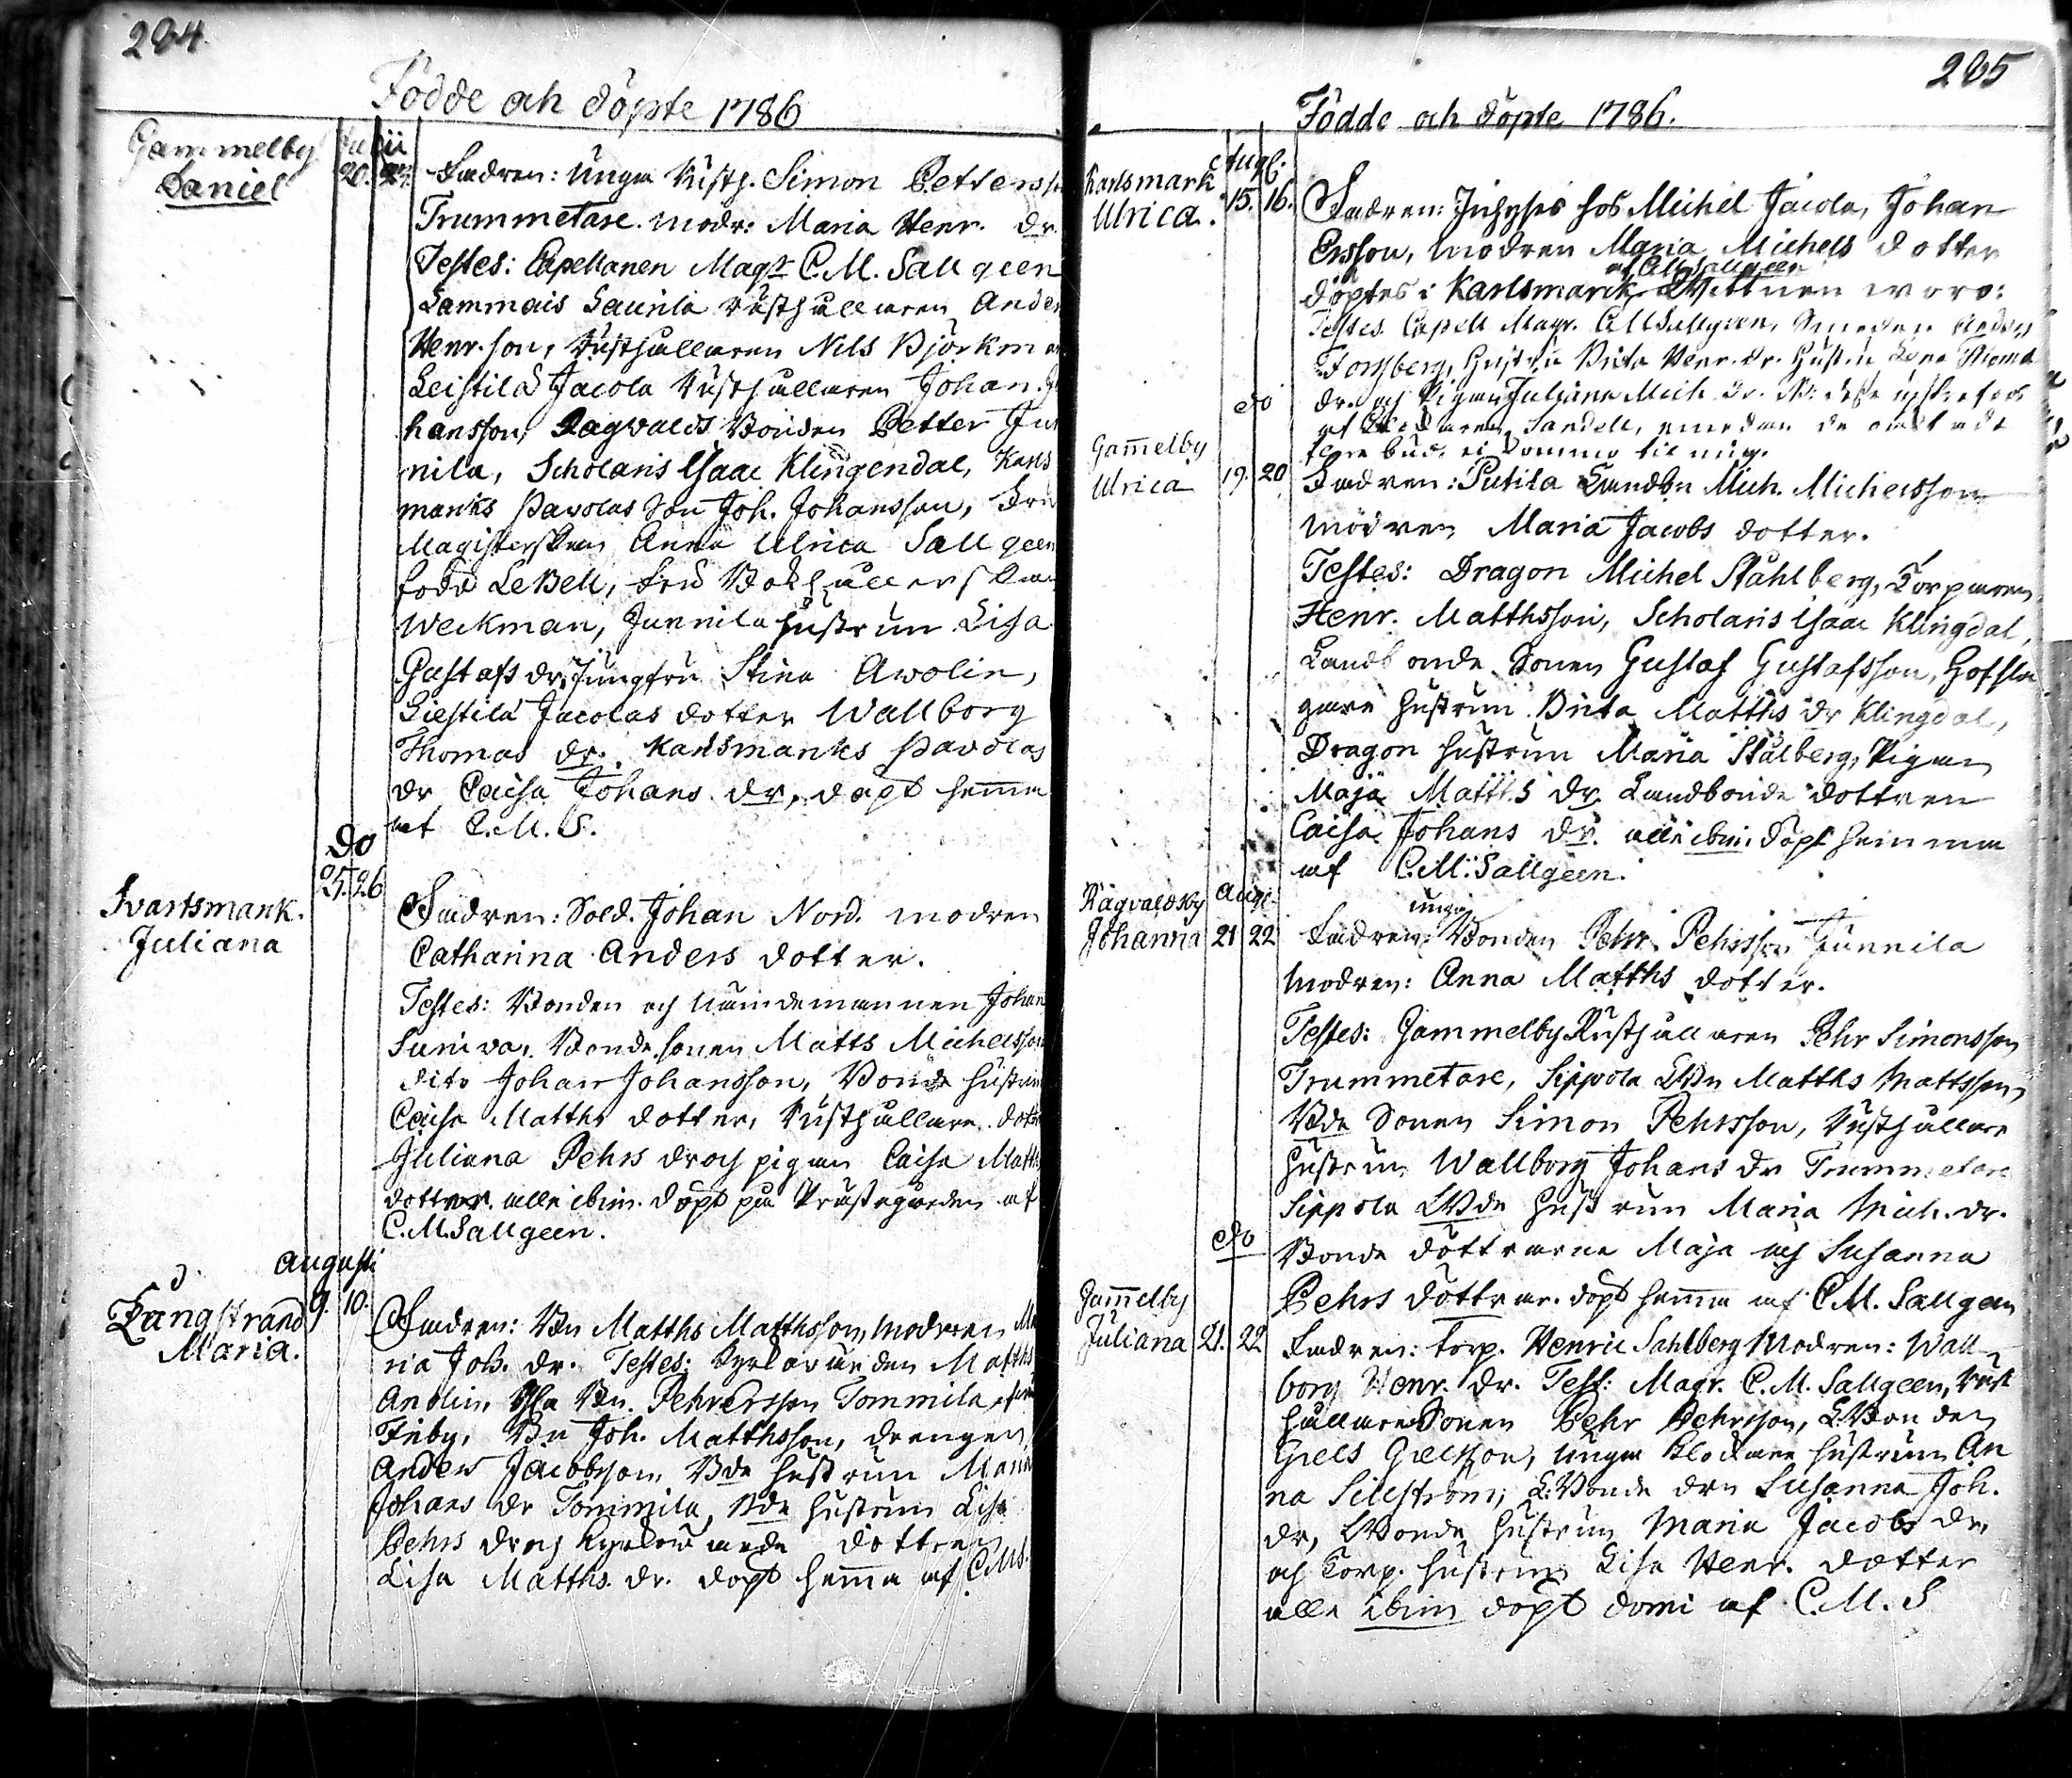 204.
Födde och döpte 1786
Gammelby Julii
Daniel 20. 27. Fadren: Unga Rusth. Simon Petterss
Trummetare. modr: Maria Henr. dr.
Testes: Capellanen Magr C. M. Sallgeen
Lammais Saurila rusthållaren Ander
Henr.son, Rusthållaren Nils Björkman
Leistilä Jacola Rusthållaren Johan Jo
hansson, Ragvalds Bonden Petter Jun
nila, Scholaris Isaac Klingendal, Karls
marks Pavolas Son Joh. Johansson, Fru
Magisterskan Anna Ulrica Sallgeen
född LeBell, Fru Bokhållerskan
Weckman, Junnila hustrun Lisa
Gustafs dr, Jungfru Stina Awolin,
Liestilä Jacolas dotter Wallborg
Thomas dr. Karlsmarks Pavolas
dr Caisa Johans dr, döpt hema
af C. M. S.
do
Svartsmark. 25. 26
Juliana Fadren: Sold. Johan Nord. modren
Catharina Anders dotter.
Testes: Bonden och Nämdemannen Johan
Suniva, Bonde sonen Matts Michelsson
dito Johan Johansson, Bonde hustrun
Caisa Matths dotter, Rusthållare dott
Juliana Pehrs dr och pigan Caisa Matths
dotter alle ibm. döpt på Prästegården af
C. M. Sallgeen.
Augusti
Långstrand 9. 10.
Maria. Fadren: Bn Matths Matthsson, modren Ma
ria Joh. dr. Testes: Kyrkovärden Matths
Andlin, Bn Pehr Ersson Tommila,
Finby, Bn Joh. Matthsson, drengen
Anders Jacobsson, Bde hustrun Maria
Johans dr Tommila, Bde hustrun Lisa
Pehrs dr och Kyrkovärde dottren
Lisa Matths. dr. döpt hema af C.M.S.
205
Födde och döpte 1786.
Karlsmark Aug:
Ulrica. 15. 16. Fadren: Inhyses hos Michel Jacola, Johan
Ersson, modren Maria Michels dotter
af C.M. Sallgeen
döptes i Karlsmark. Wittnen woro:
Testes Capell Magr. C M Sallgeen, Smeden Anders
Forsberg, hustru Brita Henr. dr. hustru Lena Thoma
dr. och Pigan Juliana Mich. dr. NB: desse
af Sandell, emedan de
flere bud, ei komma til mig.
do
Gamelby
Ulrica 19. 20. Fadren: Putila Landbn Mich. Michelsson
modren Maria Jacobs dotter.
Testes: Dragon Michel Ståhlberg, Torparen
Henr. Matthsson, Scholaris Isaac Klingdal,
Landbonde Sonen Gustaf Gustafsson, Hofsla
gare hustrun Brita Matths dr Klingdal,
Dragon hustrun Maria Stålberg, Pigan
Maja Matths dr. Landbonde dottren
Caisa Johans dr. alle ibm. döpt hemma
af C. M. Sallgeen.
Rågvaldsby Aug:
Johanna 21 22 Fadren: unga Bonden Pehr Pehrsson Junnila
modren: Anna Matths dotter.
Testes: Gammelby Rusthållaren Pehr Simonsson
Trummetare, Sippola LBn Matths Mattsson,
Bde Sonen Simon Pehrsson, Rusthållare
hustrun Wallborg Johans dr Trummetare
Sippola LBde hustrun Maria Mich. dr.
Bonde döttrarne Maja och Susanna
Pehrs döttrar. döpt hema af C.M. Sallgeen
do
Gamelby
Juliana 21. 22 Fadren: torp. Henric Sahlberg Modren: Wall
borg Henr. dr. Test: Magr. C. M. Sallgeen, Rust
hållare Sonen Pehr Pehrsson, L.Bonden
Grels Grelsson, unga Klockare hustrun An
na Silström, L.Bonde drn Susanna Joh.
dr, LBonde hustrun Maria Jacobs dr,
och Torp. hustrun Lisa Henr. dotter
alle ibm döpt domi af C. M. S